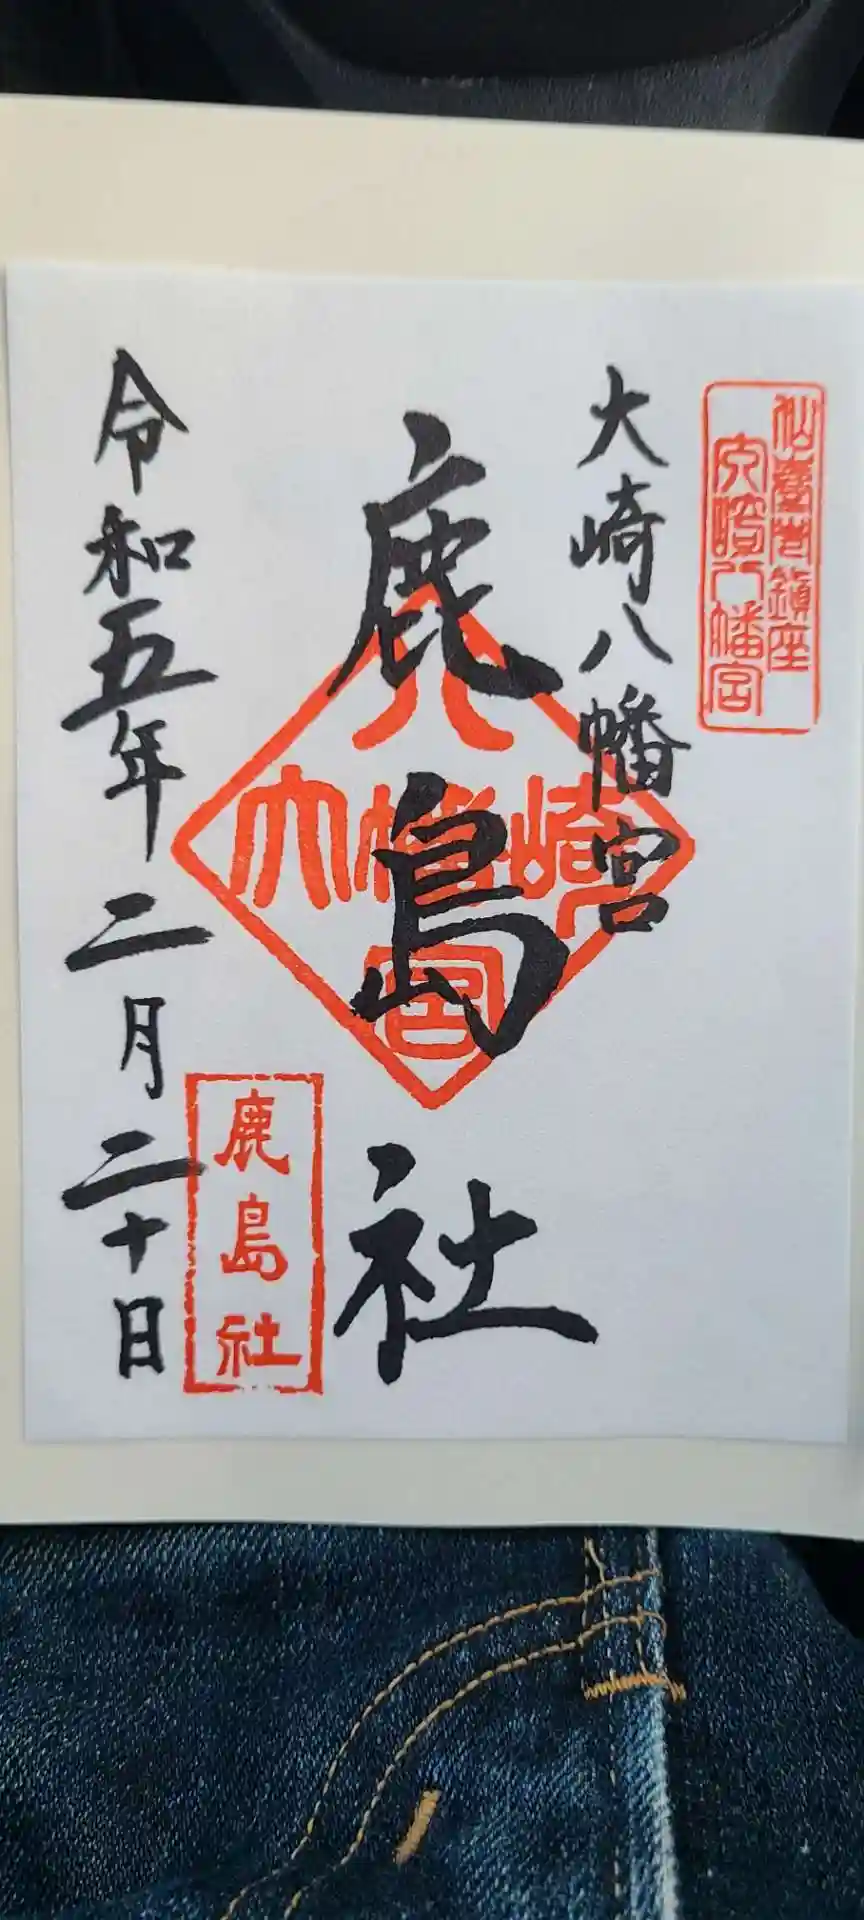 大崎八幡宮
鹿島社
令和五年二月二十日
八
大幡崎
宮
鹿島社
鎮座
八幡宮